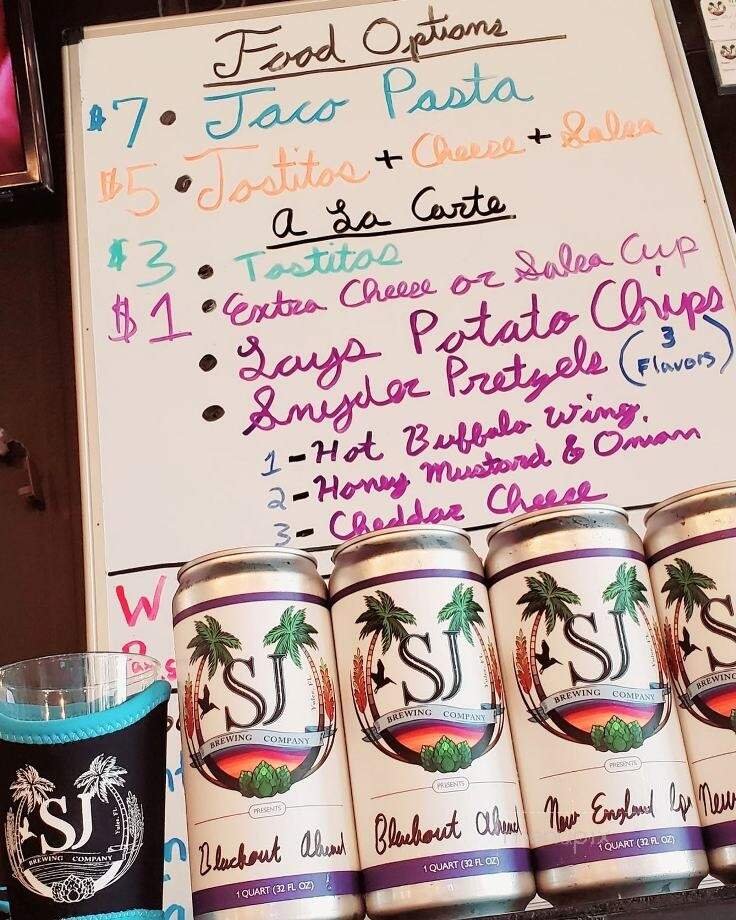 Food Options
$7 • Taco Pasta
$5 • Tostitos + Cheese + Salsa
A La Carte
$3 • Tostitos
$1 • Extra Cheese or Salsa Cup
• Lays Potato Chips
• Snyder Pretzels (3 Flavors)
1 - Hot Buffalo Wing.
2 - Honey Mustard & Onion
3 - Cheddar Cheese
W
SJ
BREWING COMPANY
Yulee, FL
PRESENTS
Blackout Ahead
1 QUART (32 FL OZ)
SJ
BREWING COMPANY
Yulee, FL
PRESENTS
Blackout Ahead
1 QUART (32 FL OZ)
SJ
BREWING COMPANY
Yulee, FL
PRESENTS
New England Ipa
1 QUART (32 FL OZ)
S
BREWING
New
SJ
BREWING COMPANY
Yulee, FL